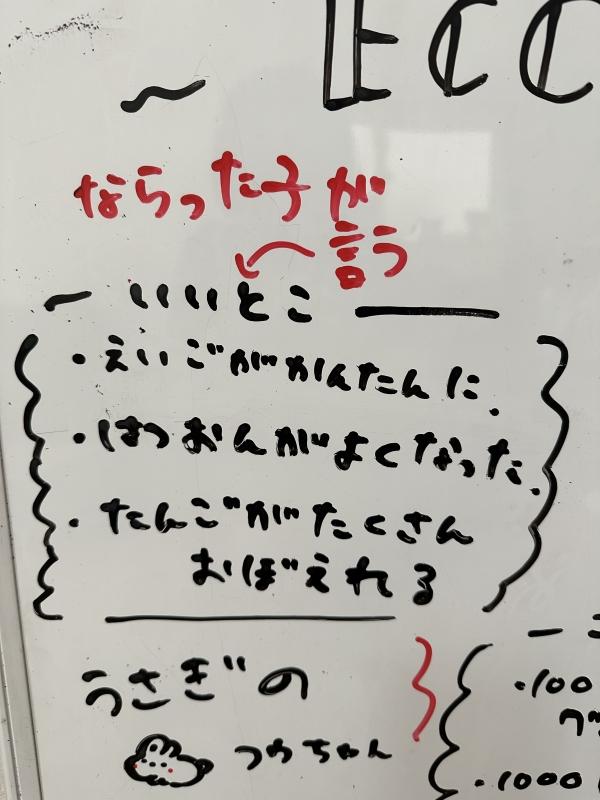 ECC
ならった子が
言う
いいとこ
・えいごがかんたんに.
・はつおんがよくなった.
・たんごがたくさん
おぼえれる
うさぎの
つうちゃん
・100
・1000